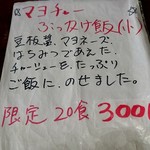 マヨチャー
ぶっかけ飯(小)
豆板醤、マヨネーズ
はちみつであえた、
チャーシューを、たっぷり
ご飯に、のせました。
限定20食 300